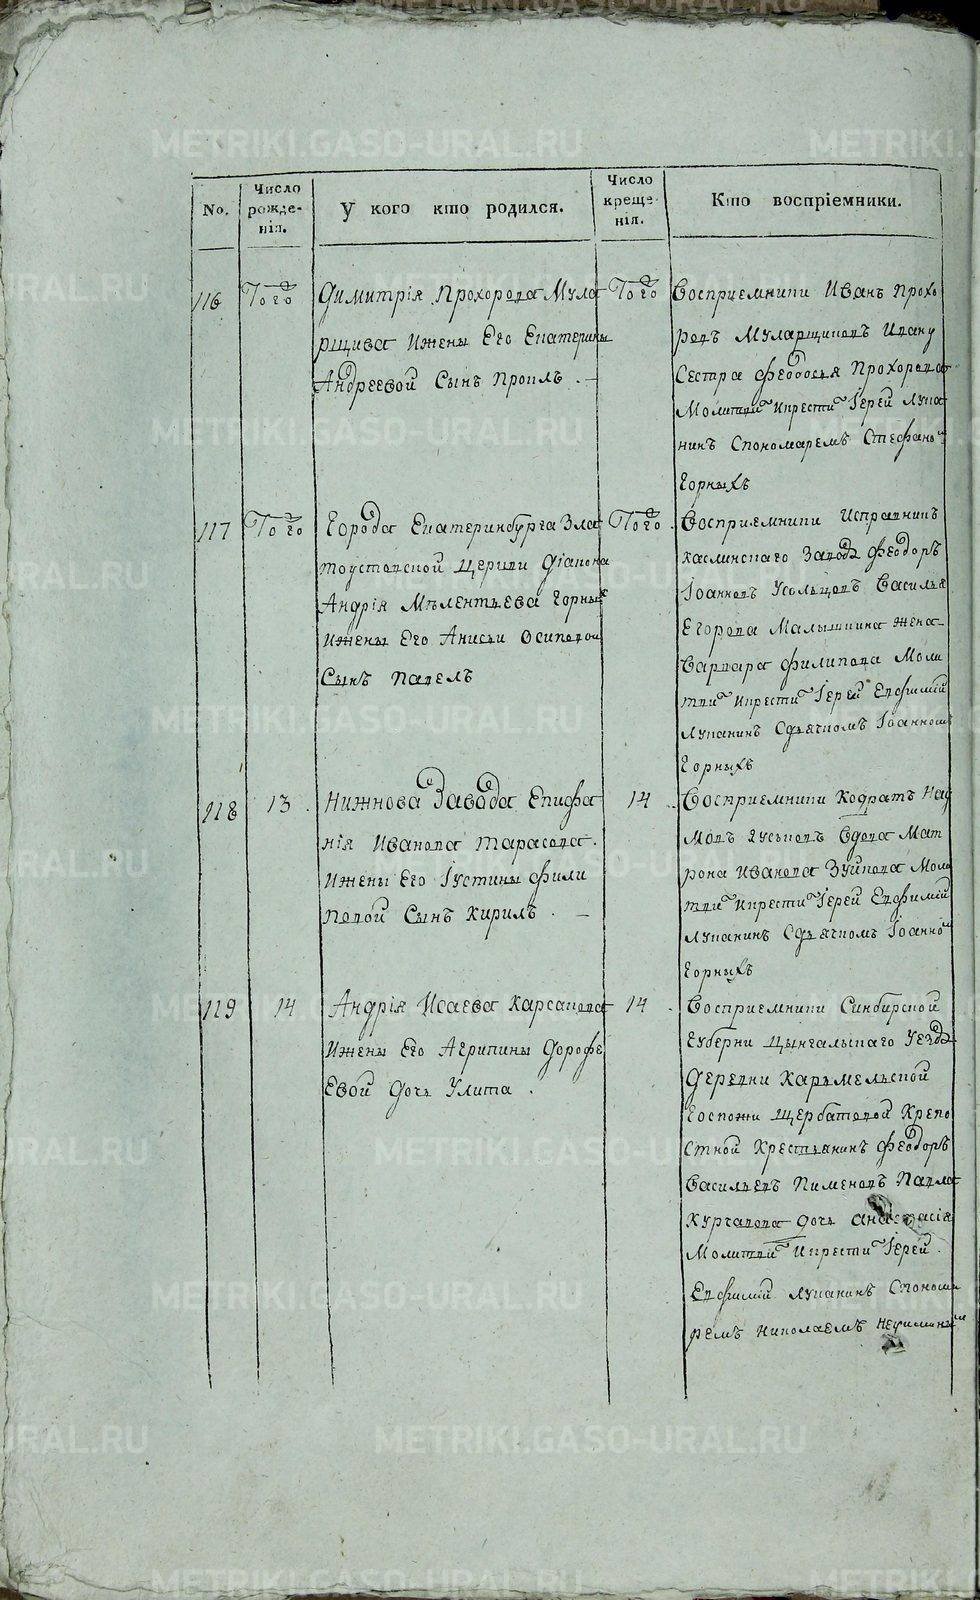 METRIKI.GASO-URAL.RU
No.
Число рожденія.
У кого кто родился.
Число крещенія.
Кто воспріемники.
116
Того
Димитрія Прохорова Мула
рщива Ижены Его Екатерины
Андреевой Сынъ Кирилъ
Того
Восприемники Иванъ Прохо
ровъ Муларщиковъ Ивану
Сестра Феодосья Прохорова
Молитви Икрести Іерей Лука
нинъ Спономаремъ Стефано
Горныхъ
117
Того
Города Екатеринбурга Зла
тоустовской Церкви Діакона
Андрія Мѣлентьева Горных
Ижены Его Анисьи Осиповой
Сынъ Павелъ
Того
Восприемники Исправникъ
Каслинскаго Завода Феодоръ
Іоанновъ Усольцовъ Василья
Егорова Малышкина жена
Варвара Филипова Моли
тви Икрести Іерей Евфимій
Луканинъ Сдьячкомъ Іоанном
Горныхъ
118
13
Нижнова Завода Епифа
нія Иванова Тарасова
Ижены Его Іустины Фили
повой Сынъ Кирилъ
14
Восприемники Кодратъ Нау
мовъ Гуськовъ Вдова Мат
рона Иванова Зуйкова Моли
тви Икрести Іерей Евфимій
Луканинъ Сдьячкомъ Іоанно
Горныхъ
119
14
Андрія Исаева Карсакова
Ижены Его Агрипины Дорофе
Евой Дочь Улита
14
Восприемники Синбирской
Губерни Уезда
Деревни Кармельской
Госпожи Щербатовой Крепо
стной Крестьянинъ Феодоръ
Васильевъ Пименовъ Павла
Курчавова Дочь Анастасія
Молитви Икрести Іерей
Евфимій Луканинъ Спонома
ремъ Николаемъ